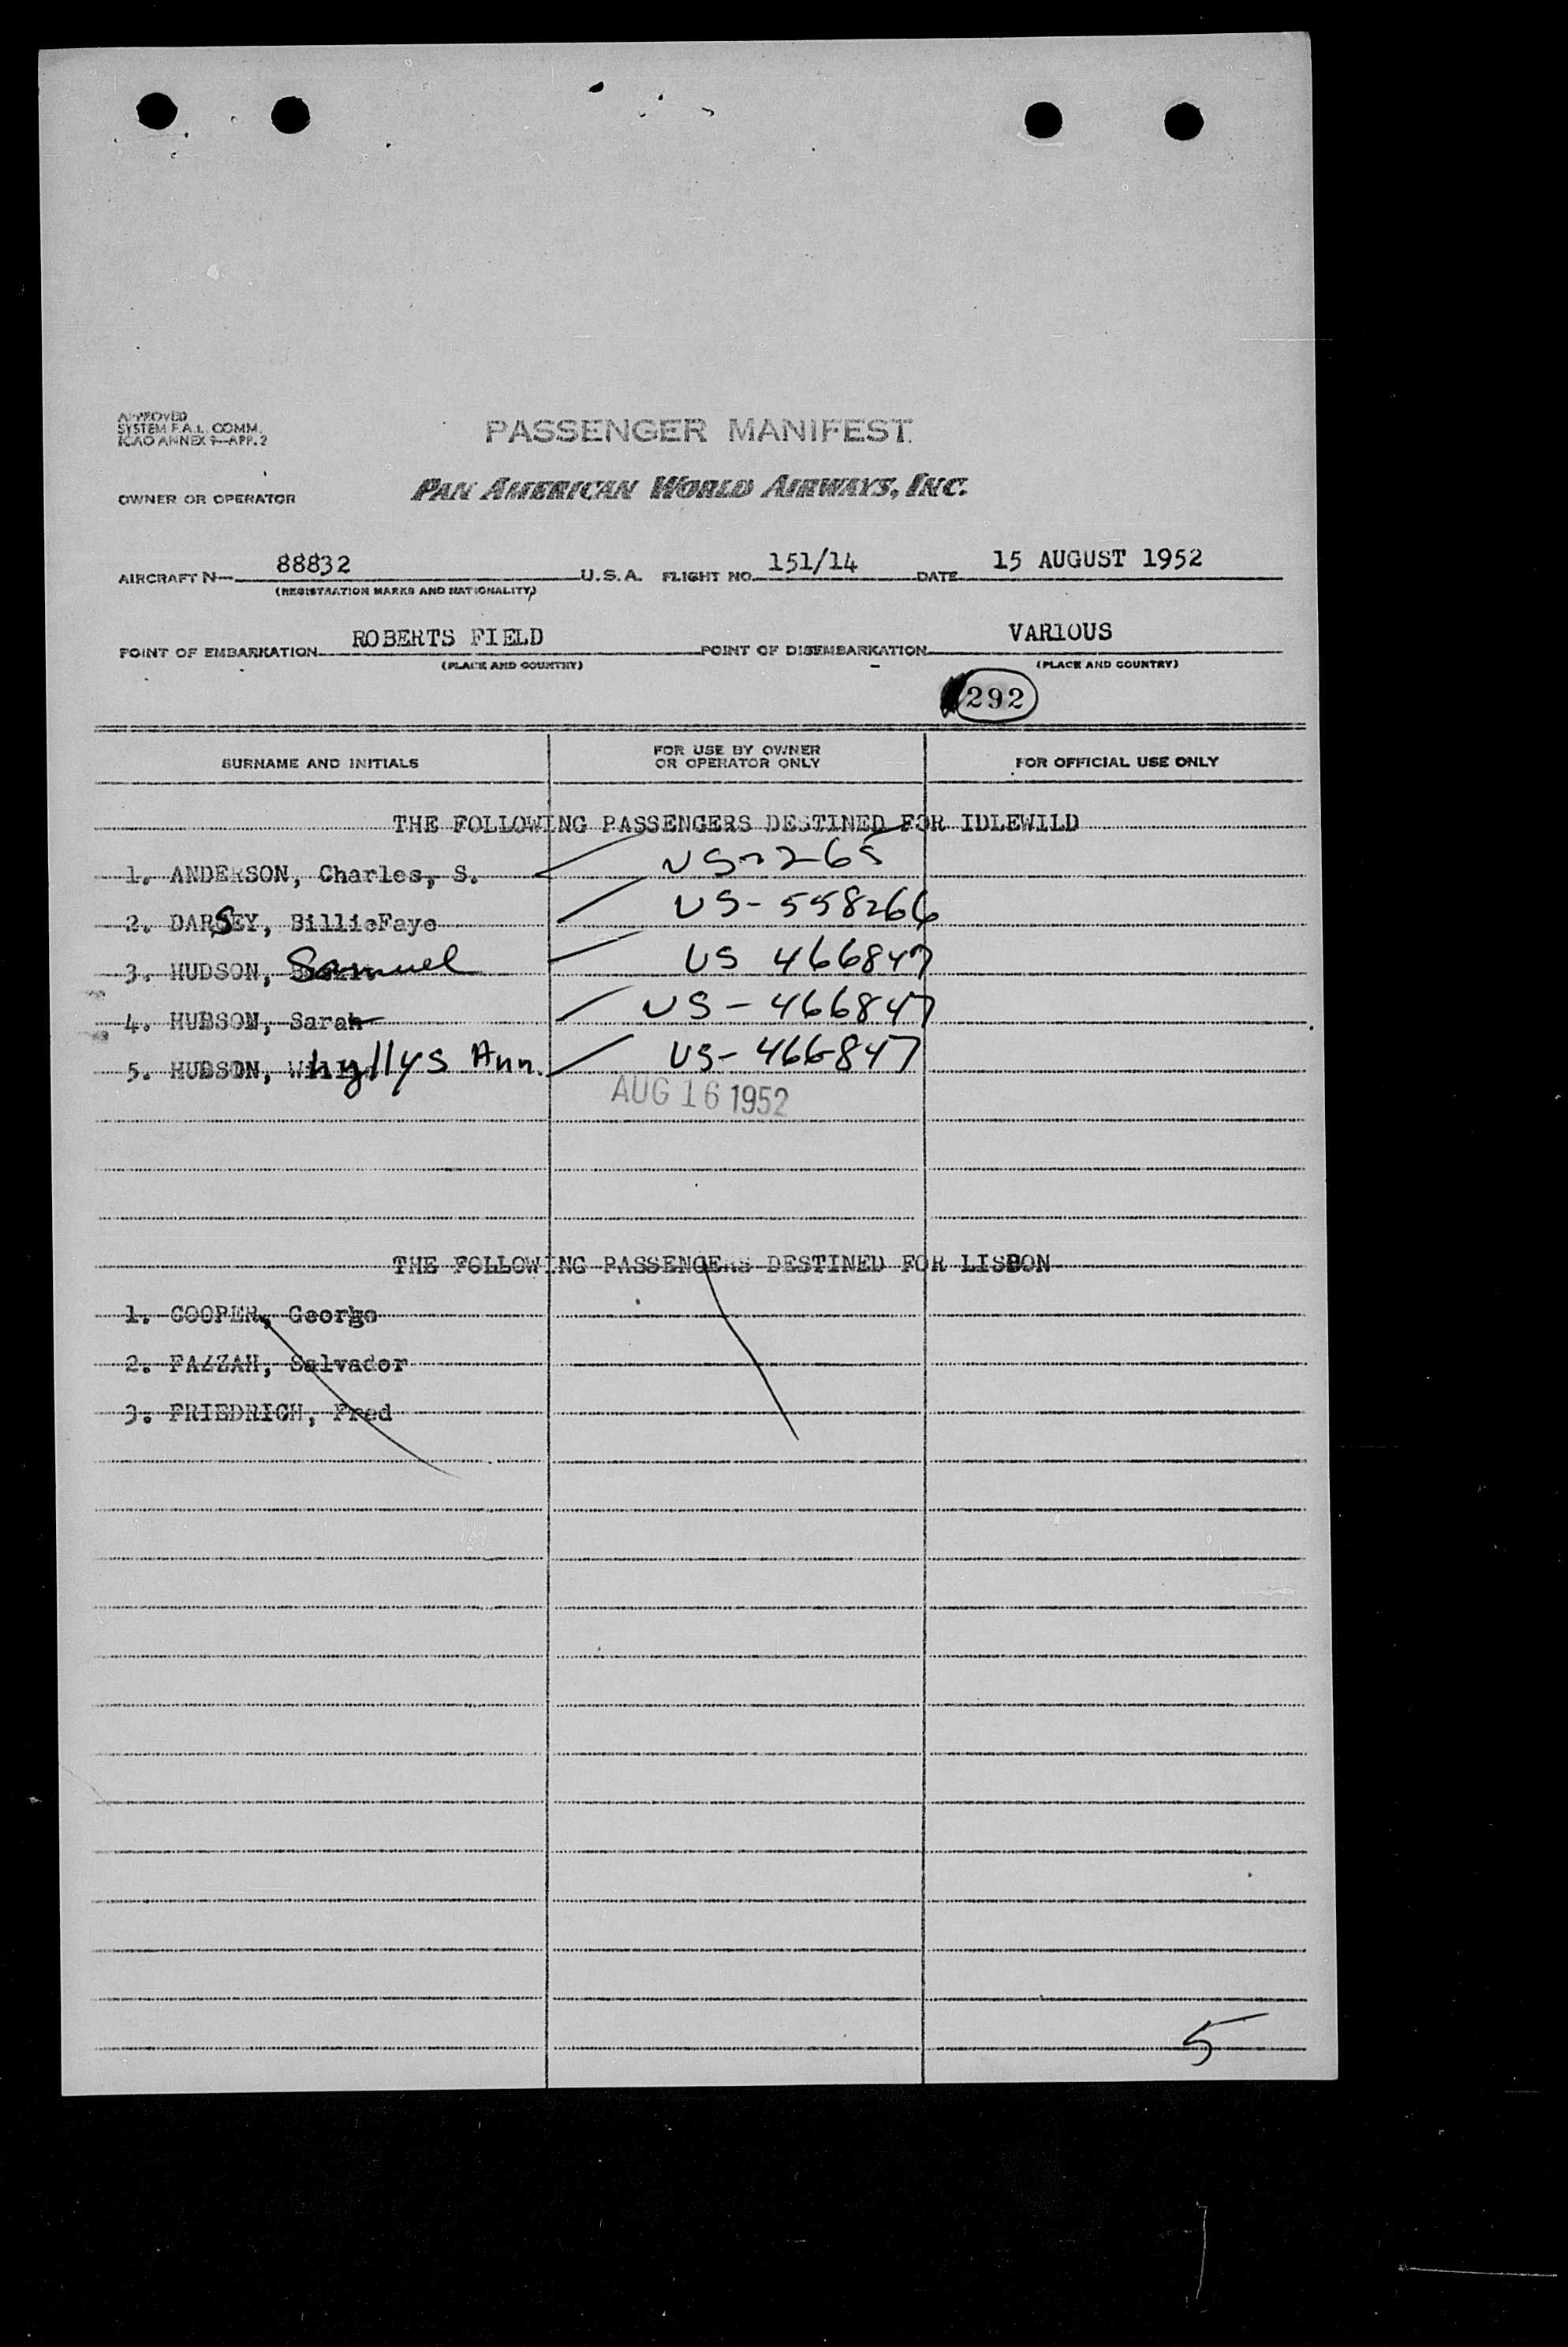 APPROVED
SYSTEM F.A.L. COMM.
ICAO ANNEX 9—APP. 2
PASSENGER MANIFEST
OWNER OR OPERATOR
PAN AMERICAN WORLD AIRWAYS, INC.
AIRCRAFT N— 88832 U.S.A. FLIGHT NO. 151/14 DATE 15 AUGUST 1952
(REGISTRATION MARKS AND NATIONALITY)
POINT OF EMBARKATION ROBERTS FIELD POINT OF DISEMBARKATION VARIOUS
(PLACE AND COUNTRY) (PLACE AND COUNTRY)
292
SURNAME AND INITIALS FOR USE BY OWNER OR OPERATOR ONLY FOR OFFICIAL USE ONLY
THE FOLLOWING PASSENGERS DESTINED FOR IDLEWILD
1. ANDERSON, Charles, S. US-265
2. DARSEY, BillieFaye US-558266
3. HUDSON, Samuel US 466847
4. HUDSON, Sarah US-466847
5. HUDSON, hyllys Ann. US-466847
AUG 16 1952
THE FOLLOWING PASSENGERS DESTINED FOR LISBON
1. COOPER, George
2. FAZZAH, Salvador
3. FRIEDRICH, Fred
5